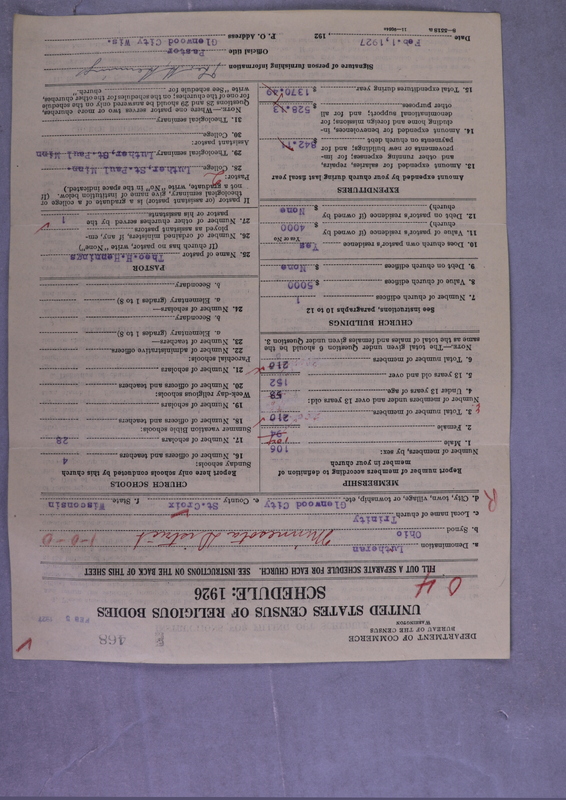 DEPARTMENT OF COMMERCE
BUREAU OF THE CENSUS
WASHINGTON
468
UNITED STATES CENSUS OF RELIGIOUS BODIES
SCHEDULE: 1926
FILL OUT A SEPARATE SCHEDULE FOR EACH CHURCH. SEE INSTRUCTIONS ON THE BACK OF THIS SHEET
a. Denomination Lutheran
b. Synod Ohio Minnesota District 1-0-0
c. Local name of church Trinity
d. City, town, village, or township, etc. Glenwood City e. County St. Croix f. State Wisconsin
MEMBERSHIP
Report number of members according to definition of member in your church
Number of members, by sex:
1. Male 106
2. Female
3. Total number of members 210
Number of members under and over 13 years old:
4. Under 13 years of age 58
5. 13 years old and over 152
6. Total number of members 210
NOTE.—The total given under Question 6 should be the same as the total of males and females given under Question 3.
CHURCH BUILDINGS
See instructions, paragraphs 10 to 12
7. Number of church edifices 1
8. Value of church edifices $ 5000
9. Debt on church edifices $ None
10. Does church own pastor's residence Yes
Yes or No
11. Value of pastor's residence (if owned by church) $ 4000
12. Debt on pastor's residence (if owned by church) $ None
EXPENDITURES
Amount expended by your church during last fiscal year
13. Amount expended for salaries, repairs, and other running expenses; for improvements or new buildings; and for payments on church debt $ 842.
14. Amount expended for benevolences, including home and foreign missions; for denominational support; and for all other purposes $ 528.
15. Total expenditures during year $ 1370.
CHURCH SCHOOLS
Report here only schools conducted by this church
Sunday schools:
16. Number of officers and teachers 4
17. Number of scholars 28
Summer vacation Bible schools:
18. Number of officers and teachers
19. Number of scholars
Week-day religious schools:
20. Number of officers and teachers
21. Number of scholars
Parochial schools:
22. Number of administrative officers
23. Number of teachers—
a. Elementary (grades 1 to 8)
b. Secondary
24. Number of scholars—
a. Elementary (grades 1 to 8)
b. Secondary
PASTOR
25. Name of pastor Theo.H.Hennings
(If church has no pastor, write "None")
26. Number of ordained ministers, if any, employed as assistant pastors
27. Number of other churches served by the pastor or his assistants 1
If pastor (or assistant pastor) is a graduate of a college or theological seminary, give name of institution below. (If not a graduate, write "No" in the space indicated.)
Pastor:
28. College Luther, St. Paul Minn.
29. Theological seminary Luther, St. Paul Minn
Assistant pastor:
30. College
31. Theological seminary
NOTE.—Where one pastor serves two or more churches, Questions 28 and 29 should be answered only on the schedule for one of the churches; on the schedules for the other churches, write "See schedule for church."
Signature of person furnishing information
Official title Pastor
P. O. Address Glenwood City Wis.
Date Feb.1,1927 192